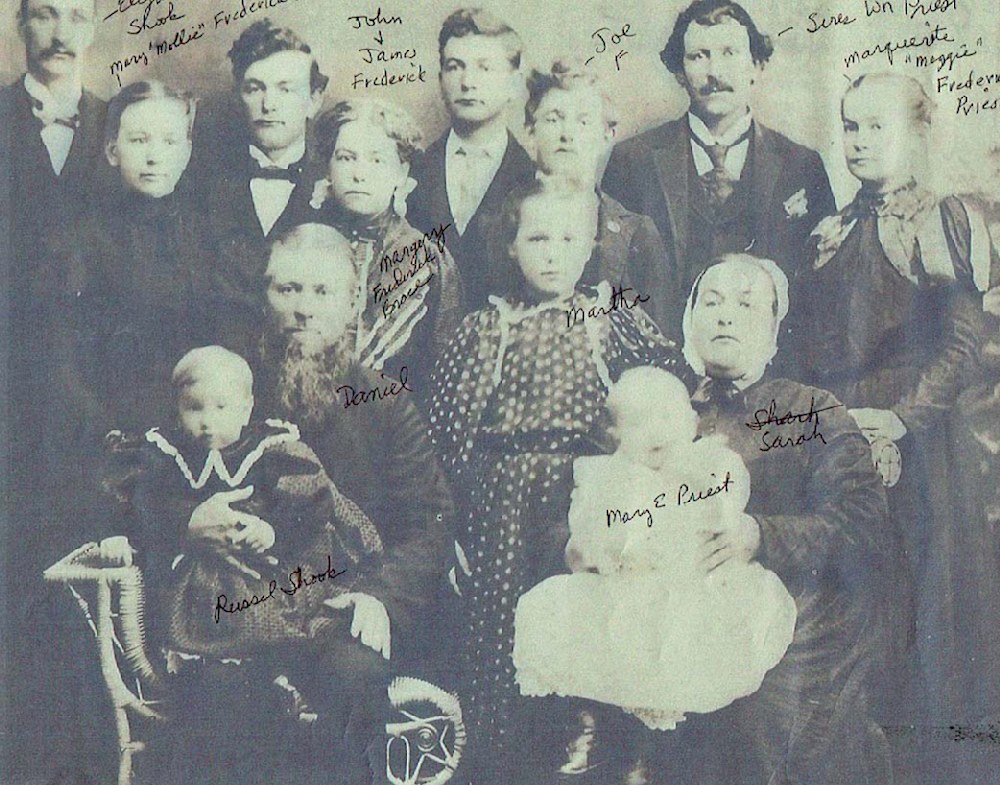 Shook
Mary "Mollie" Frederick
John
+
James
Frederick
Joe
F
Sires Wm Priest
Marguerite
"Maggie"
Frederick
Priest
Margery
Frederick
Brace
Martha
Daniel
Shart
Sarah
Mary E Priest
Russel Shook